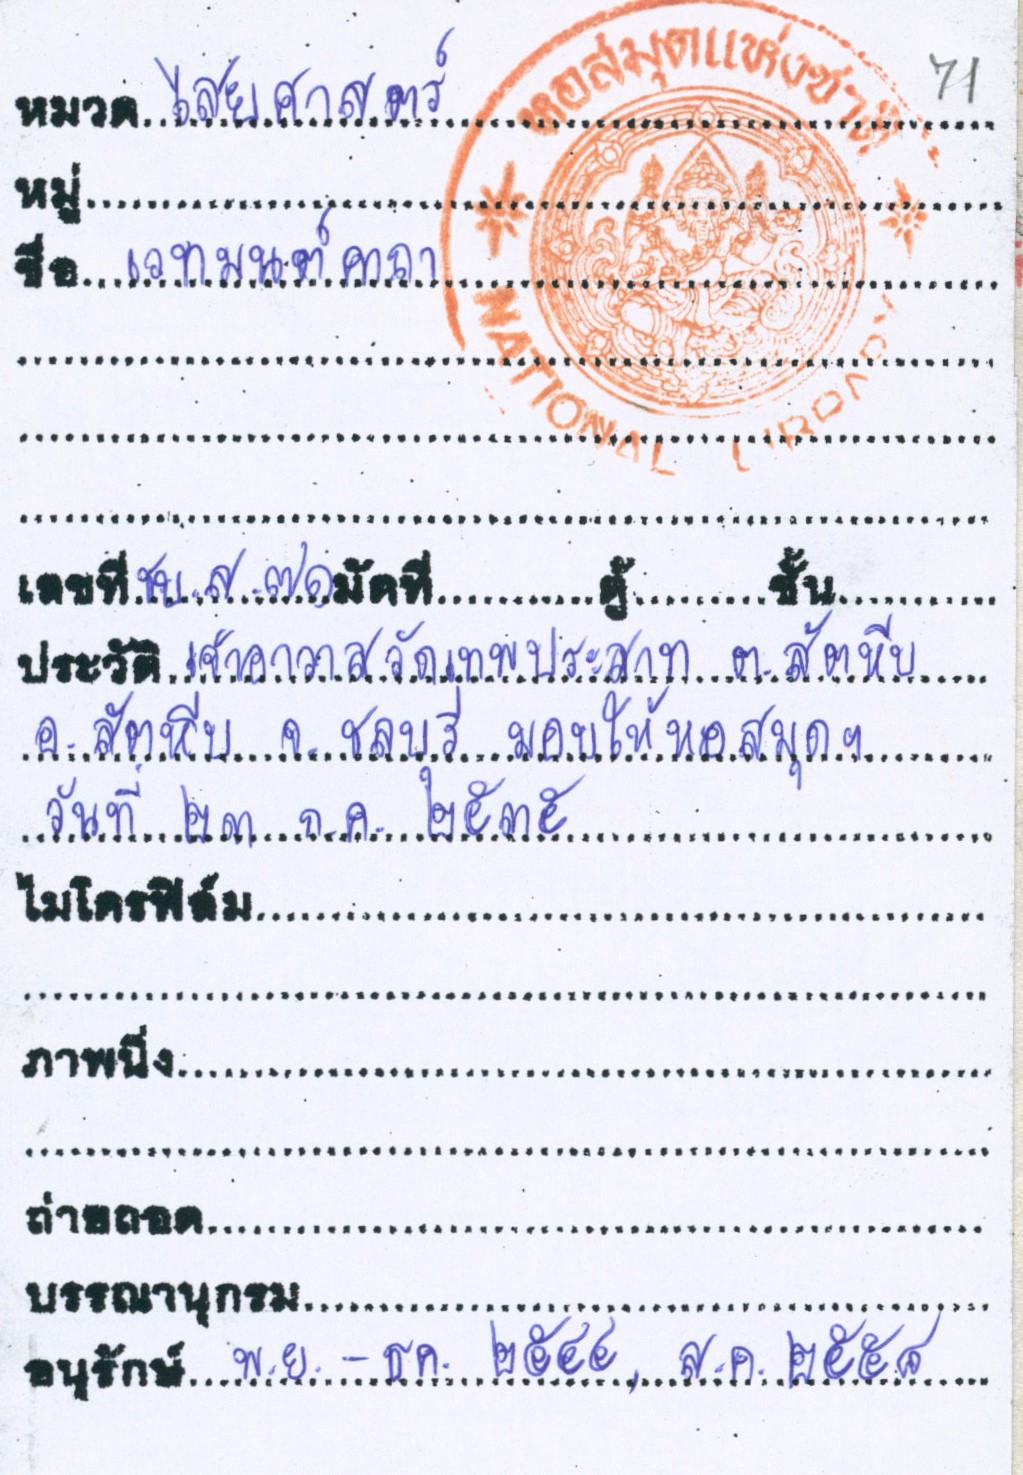 71
หอสมุดแห่งชาติ
NATIONAL LIBRARY
หมวด ไสยศาสตร์
หมู่
ชื่อ เวทมนต์คาถา
เลขที่ ชบ.ส.๗๑ มัดที่ ตู้ ชั้น
ประวัติ เจ้าอาวาสวัดเทพประสาท ต.สัตหีบ
อ.สัตหีบ จ.ชลบุรี มอบให้หอสมุดฯ
วันที่ ๒๓ ก.ค. ๒๕๓๕
ไมโครฟิล์ม
ภาพนิ่ง
ถ่ายถอด
บรรณานุกรม
อนุรักษ์ พ.ย. - ธค. ๒๕๔๔, ส.ค.